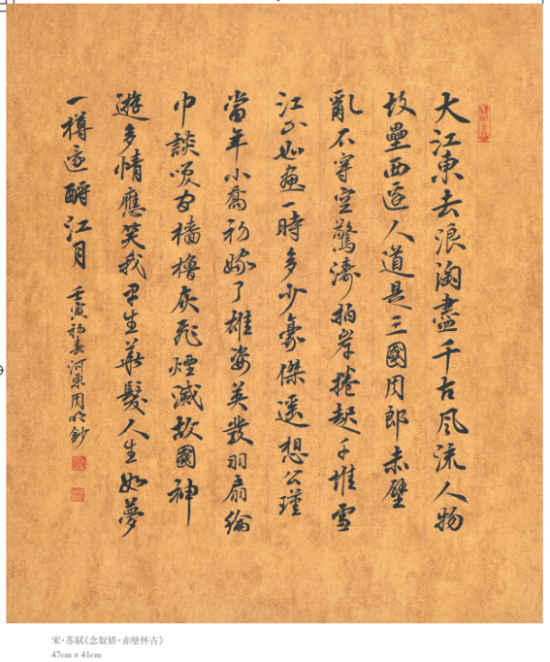 大江東去浪淘盡千古風流人物
故壘西邊人道是三國周郎赤壁
亂石穿空驚濤拍岸捲起千堆雪
江山如畫一時多少豪傑遙想公瑾
當年小喬初嫁了雄姿英發羽扇綸
巾談笑間檣櫓灰飛煙滅故國神
遊多情應笑我早生華髮人生如夢
一樽還酹江月
壬寅初春河東周鈔
宋·苏轼《念奴娇·赤壁怀古》
47cm×41cm